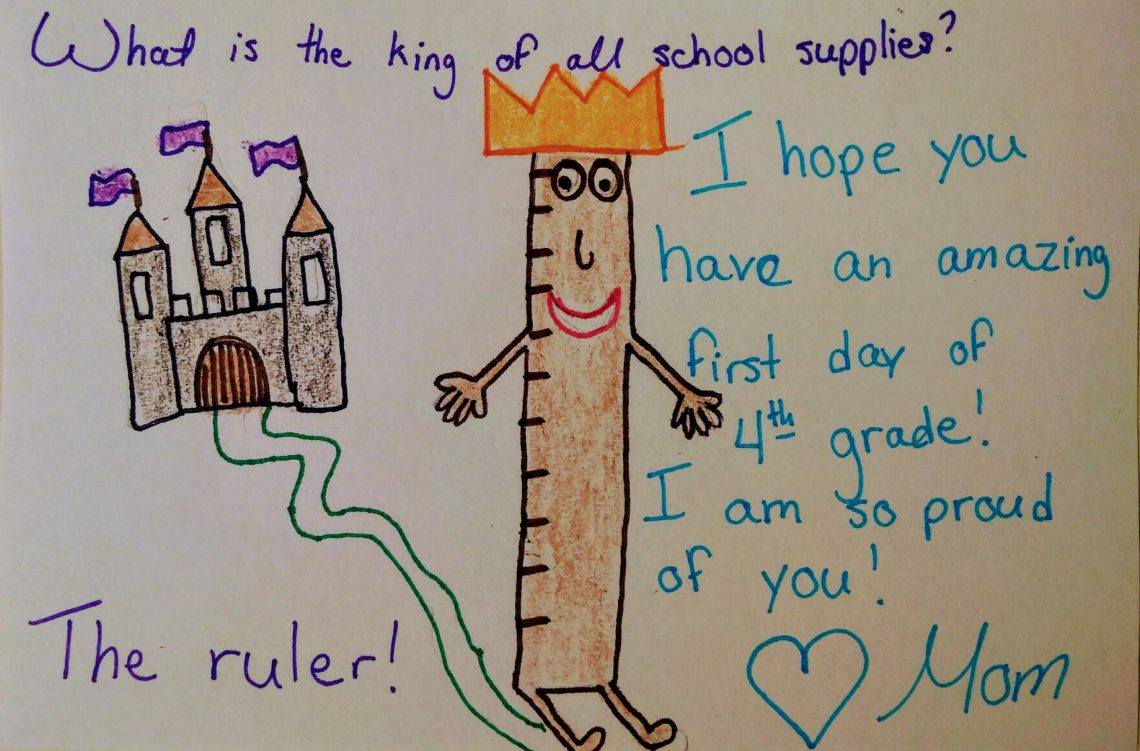 What is the king of all school supplies?
I hope you
have an amazing
first day of
4th grade!
I am so proud
of you!
The ruler!
♥ Mom